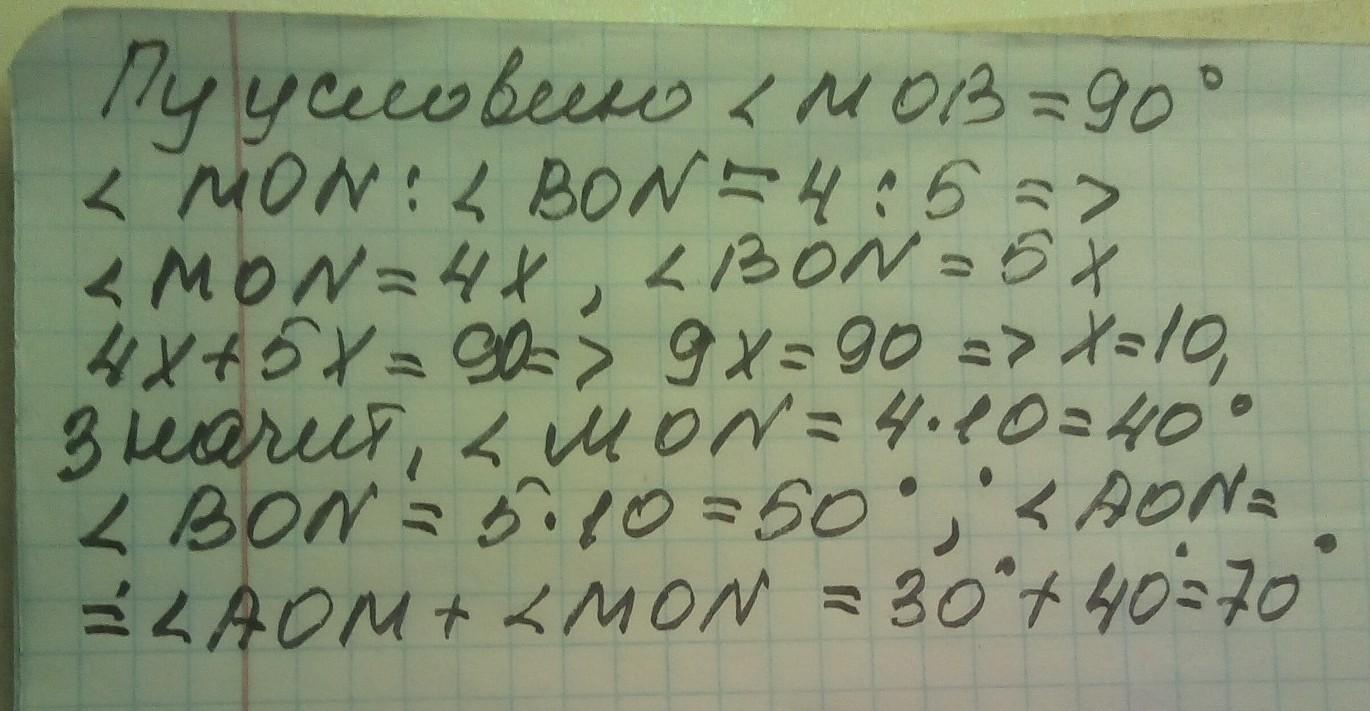 Пу условию < MOB = 90°
< MON : < BON = 4 : 5 =>
< MON = 4x , < BON = 5x
4x + 5x = 90 => 9x = 90 => x = 10,
Значит, < MON = 4·10 = 40°
< BON = 5·10 = 50° ; < AON =
= < AOM + < MON = 30° + 40° = 70°